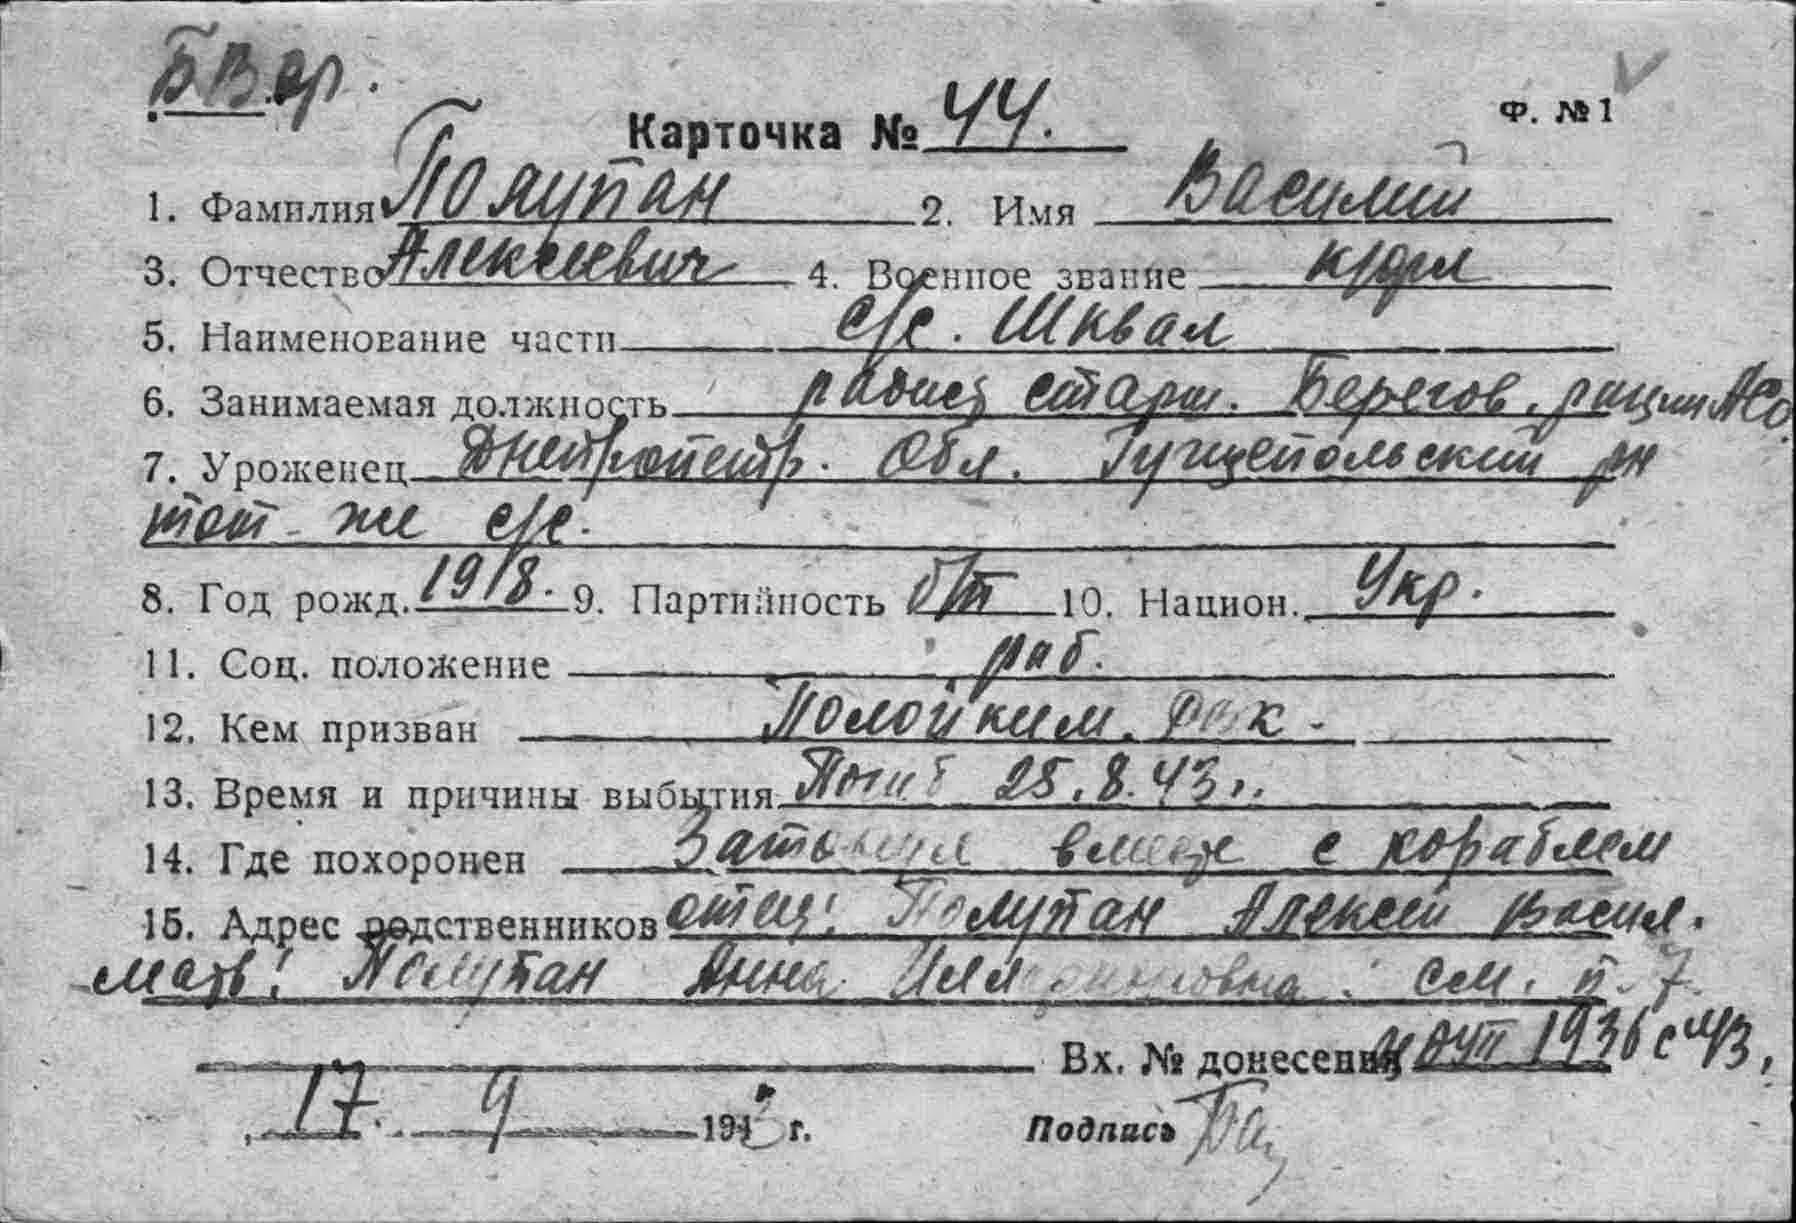 БВ ср.
Ф. № 1
Карточка № 44.
1. Фамилия Полупан 2. Имя Василий
3. Отчество Алексеевич 4. Военное звание к/фл
5. Наименование части с/с. Шквал
6. Занимаемая должность радист старш. Берегов. рации
7. Уроженец Днепропетр. Обл. рн
тот-же с/с.
8. Год рожд. 1918. 9. Партийность б/п 10. Национ. Укр.
11. Соц. положение раб.
12. Кем призван РВК.
13. Время и причины выбытия Погиб 25.8.43 г.
14. Где похоронен Затонул вместе с кораблем
15. Адрес родственников отец: Полупан Алексей Васил.
мать: Полупан Анна см. п. 7
Вх. № донесения 1936 с 43.
17. 9 1943 г. Подпись